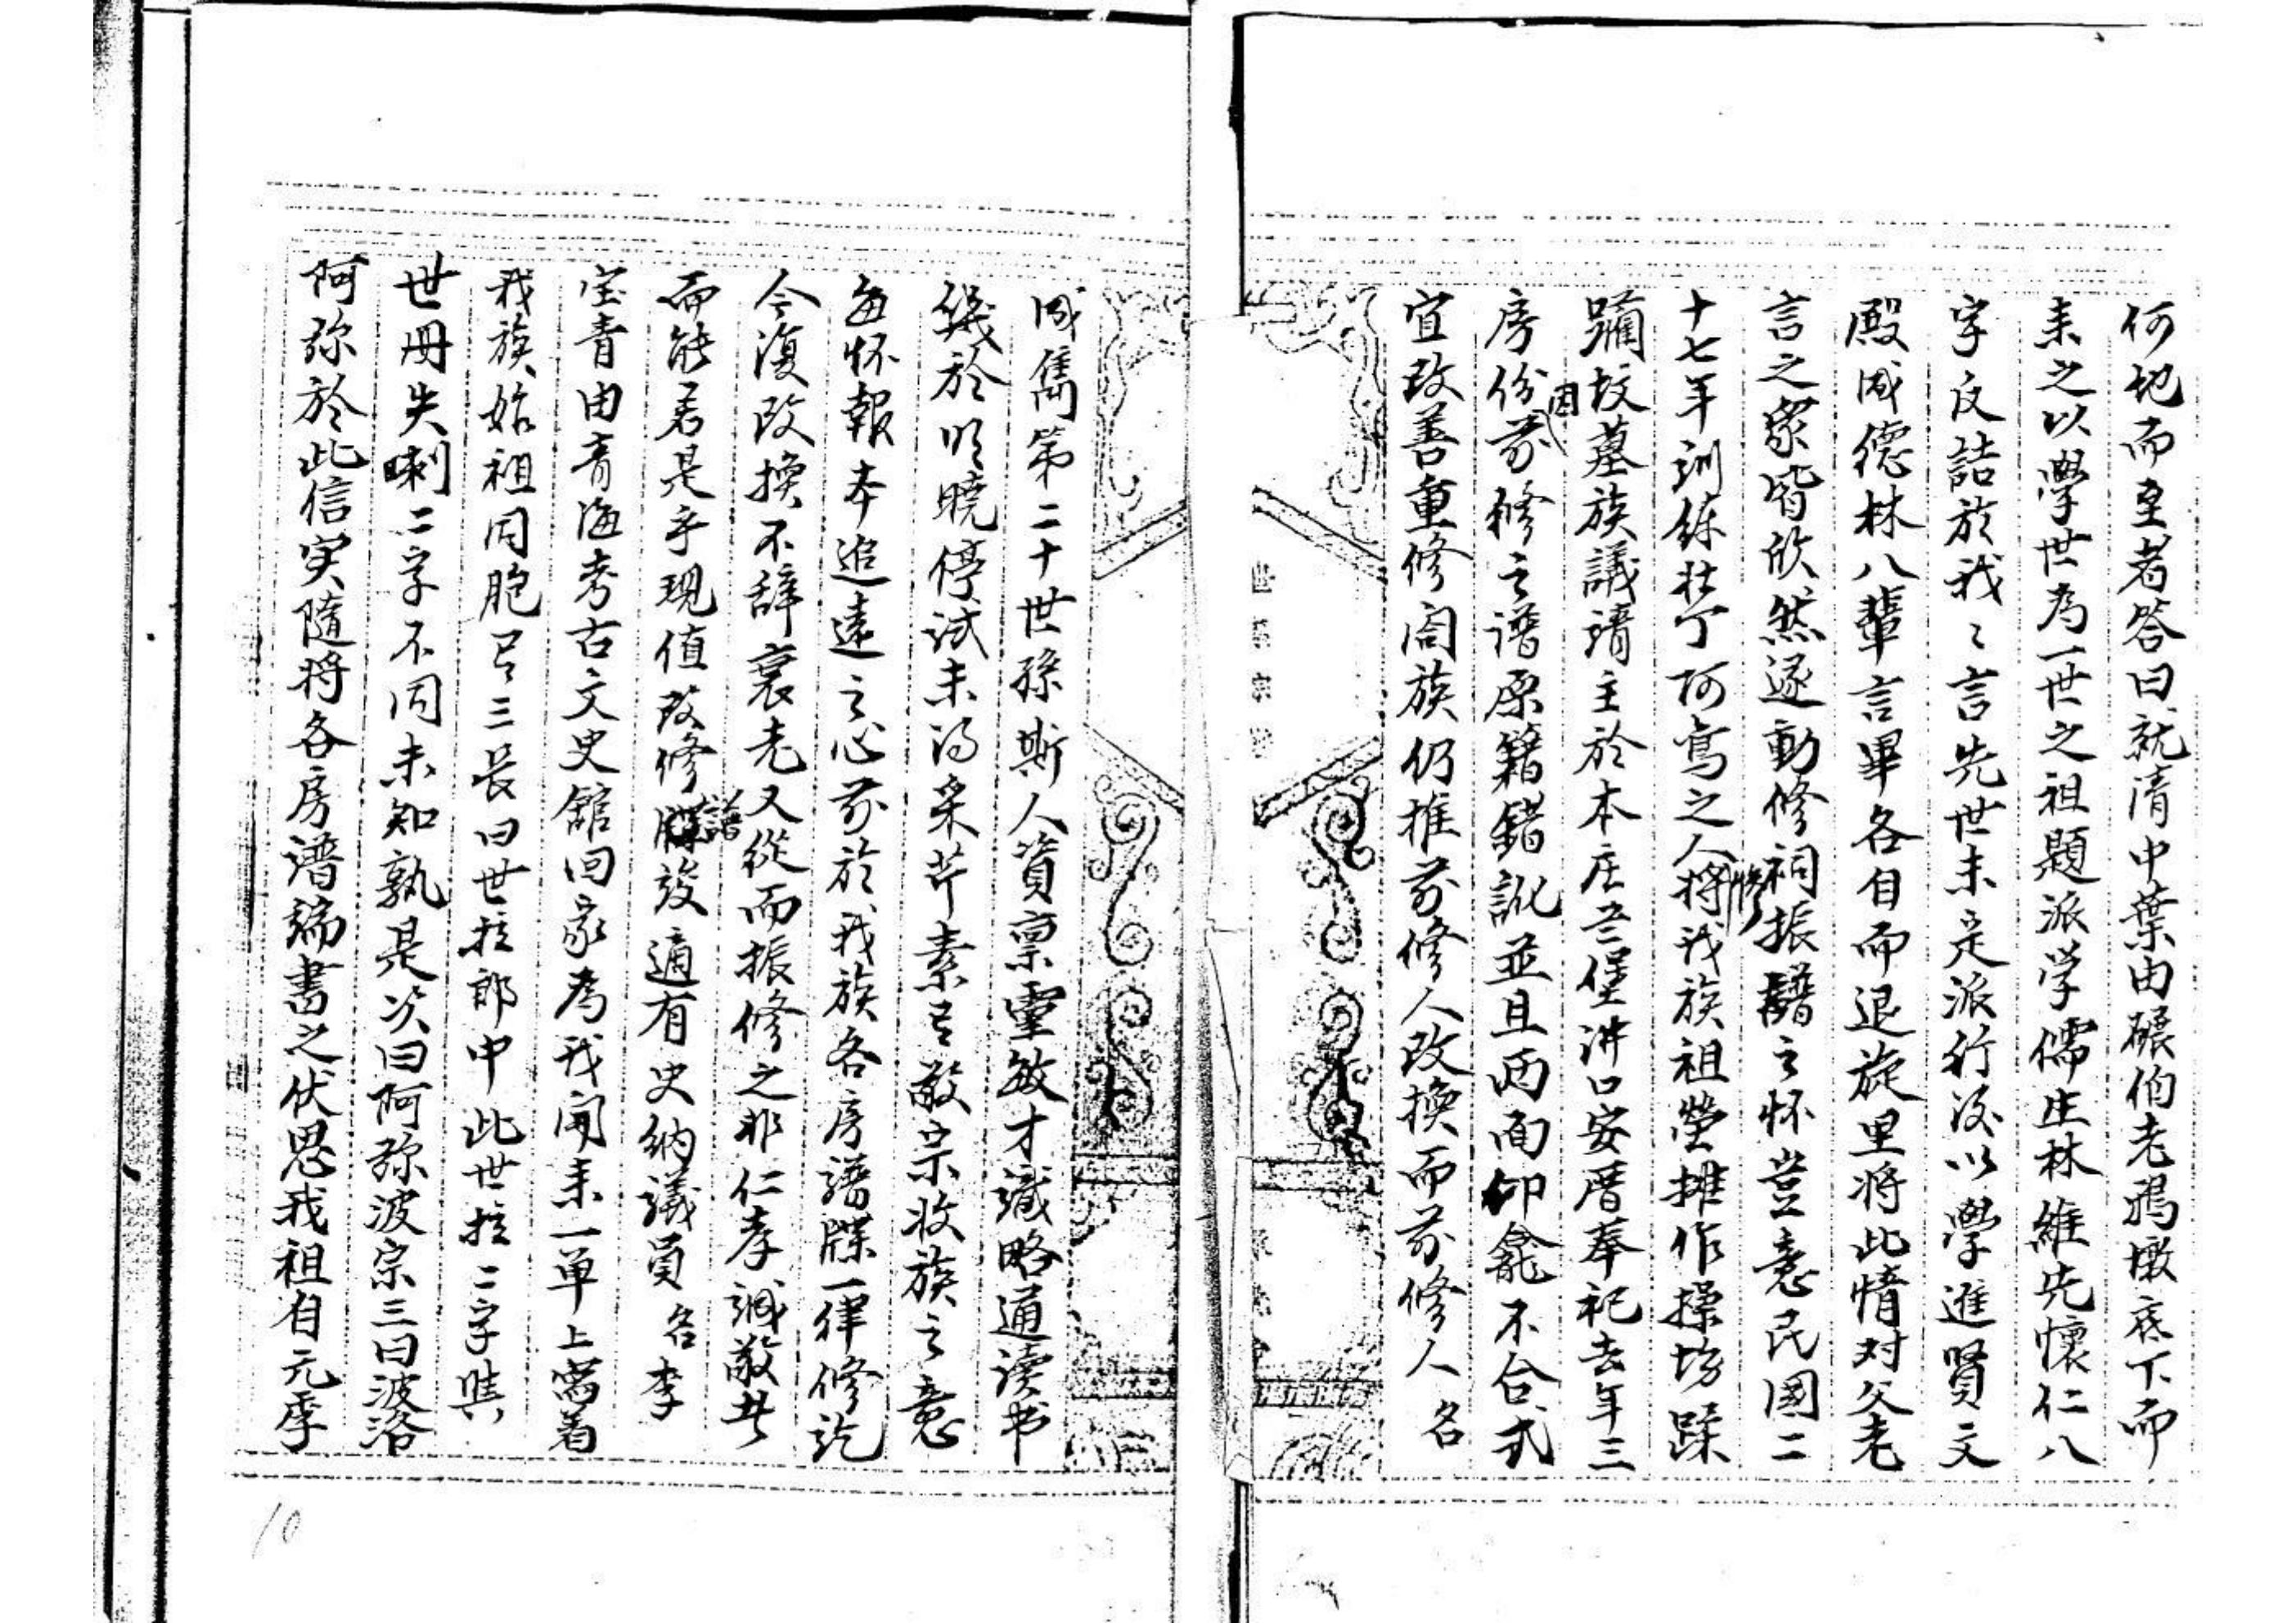 何地而至者答曰就清中葉由碾伯老鴉墩底下而
来之以學世为一世之祖題派学儒生林維先懷仁八
字反詰於我〻言先世未定派行後以學進賢文
殿成德林八輩言畢各自而退旋里将此情对父老
言之衆皆欣然遂動修祠振譜之怀豈意民國二
十七年訓练壮丁阿寫之人将我族祖塋摊作操场蹂
躪坟墓族議請主於本庄堡讲口安厝奉祀去年三
房份因芬修之谱原籍錯訛並且両面仰龕不合式
宜改善重修阖族仍推芬修人改換而芬修人 名
成雋第二十世孫斯人資禀靈敏才識略通读书
幾於明曉停试未得采芹素有敬宗收族之意
每怀報本追遠之心芬於我族各房譜牒一律修訖
今復改換不辞衰老又從而振修之非仁孝誠敬者
而能若是乎現值改修譜设適有史納議員 名李
宝青由青海考古文史館回家为我闻来一单上寫着
我族始祖同胞弓三长曰世拉郎中此世拉二字與
世冊失喇二字不同未知孰是次曰阿弥波宗三曰波洛
阿弥於此信实隨将各房谱编書之伏思我祖自元季
世系宗譜
10